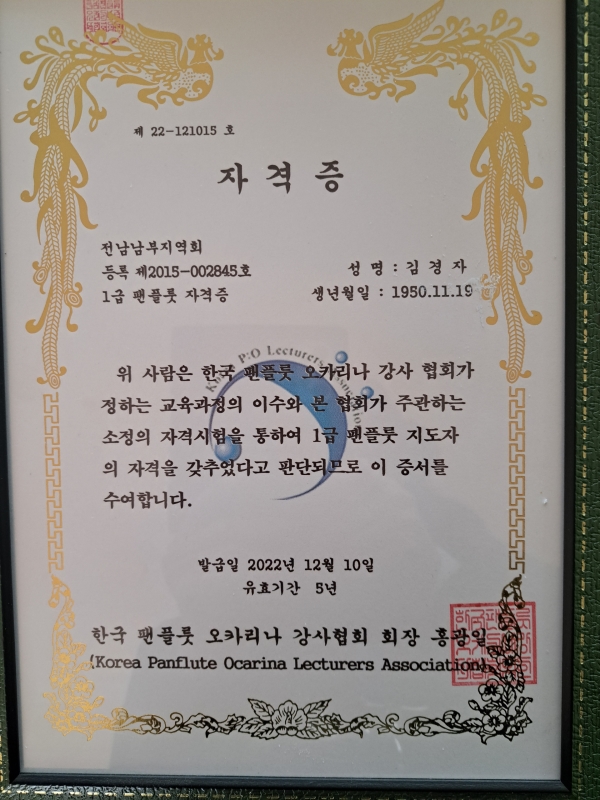 제 22-121015 호
자 격 증
전남남부지역회
등록 제2015-002845호
1급 팬플룻 자격증
성 명 : 김 경 자
생년월일 : 1950.11.19
위 사람은 한국 팬플룻 오카리나 강사 협회가
정하는 교육과정의 이수와 본 협회가 주관하는
소정의 자격시험을 통하여 1급 팬플룻 지도자
의 자격을 갖추었다고 판단되므로 이 증서를
수여합니다.
발급일 2022년 12월 10일
유효기간 5년
한국 팬플룻 오카리나 강사협회 회장 홍광일
(Korea Panflute Ocarina Lecturers Association)
Korea P&#58;O Lecturers Association